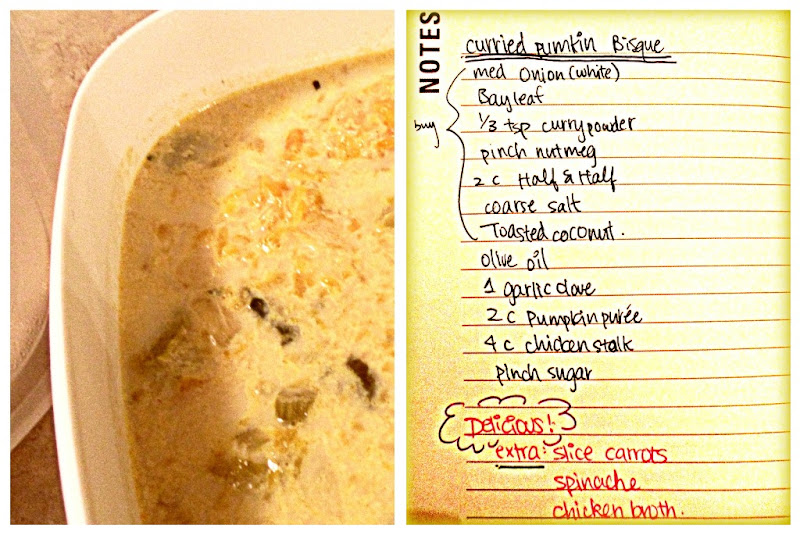 NOTES
curried pumkin Bisque
med Onion (white)
Bayleaf
buy
1/3 tsp curry powder
pinch nutmeg
2 c Half & Half
coarse salt
Toasted coconut.
olive oil
1 garlic clove
2 c Pumpkin purée
4 c chicken stalk
pinch sugar
Delicious!
extra: slice carrots
spinache
chicken broth.